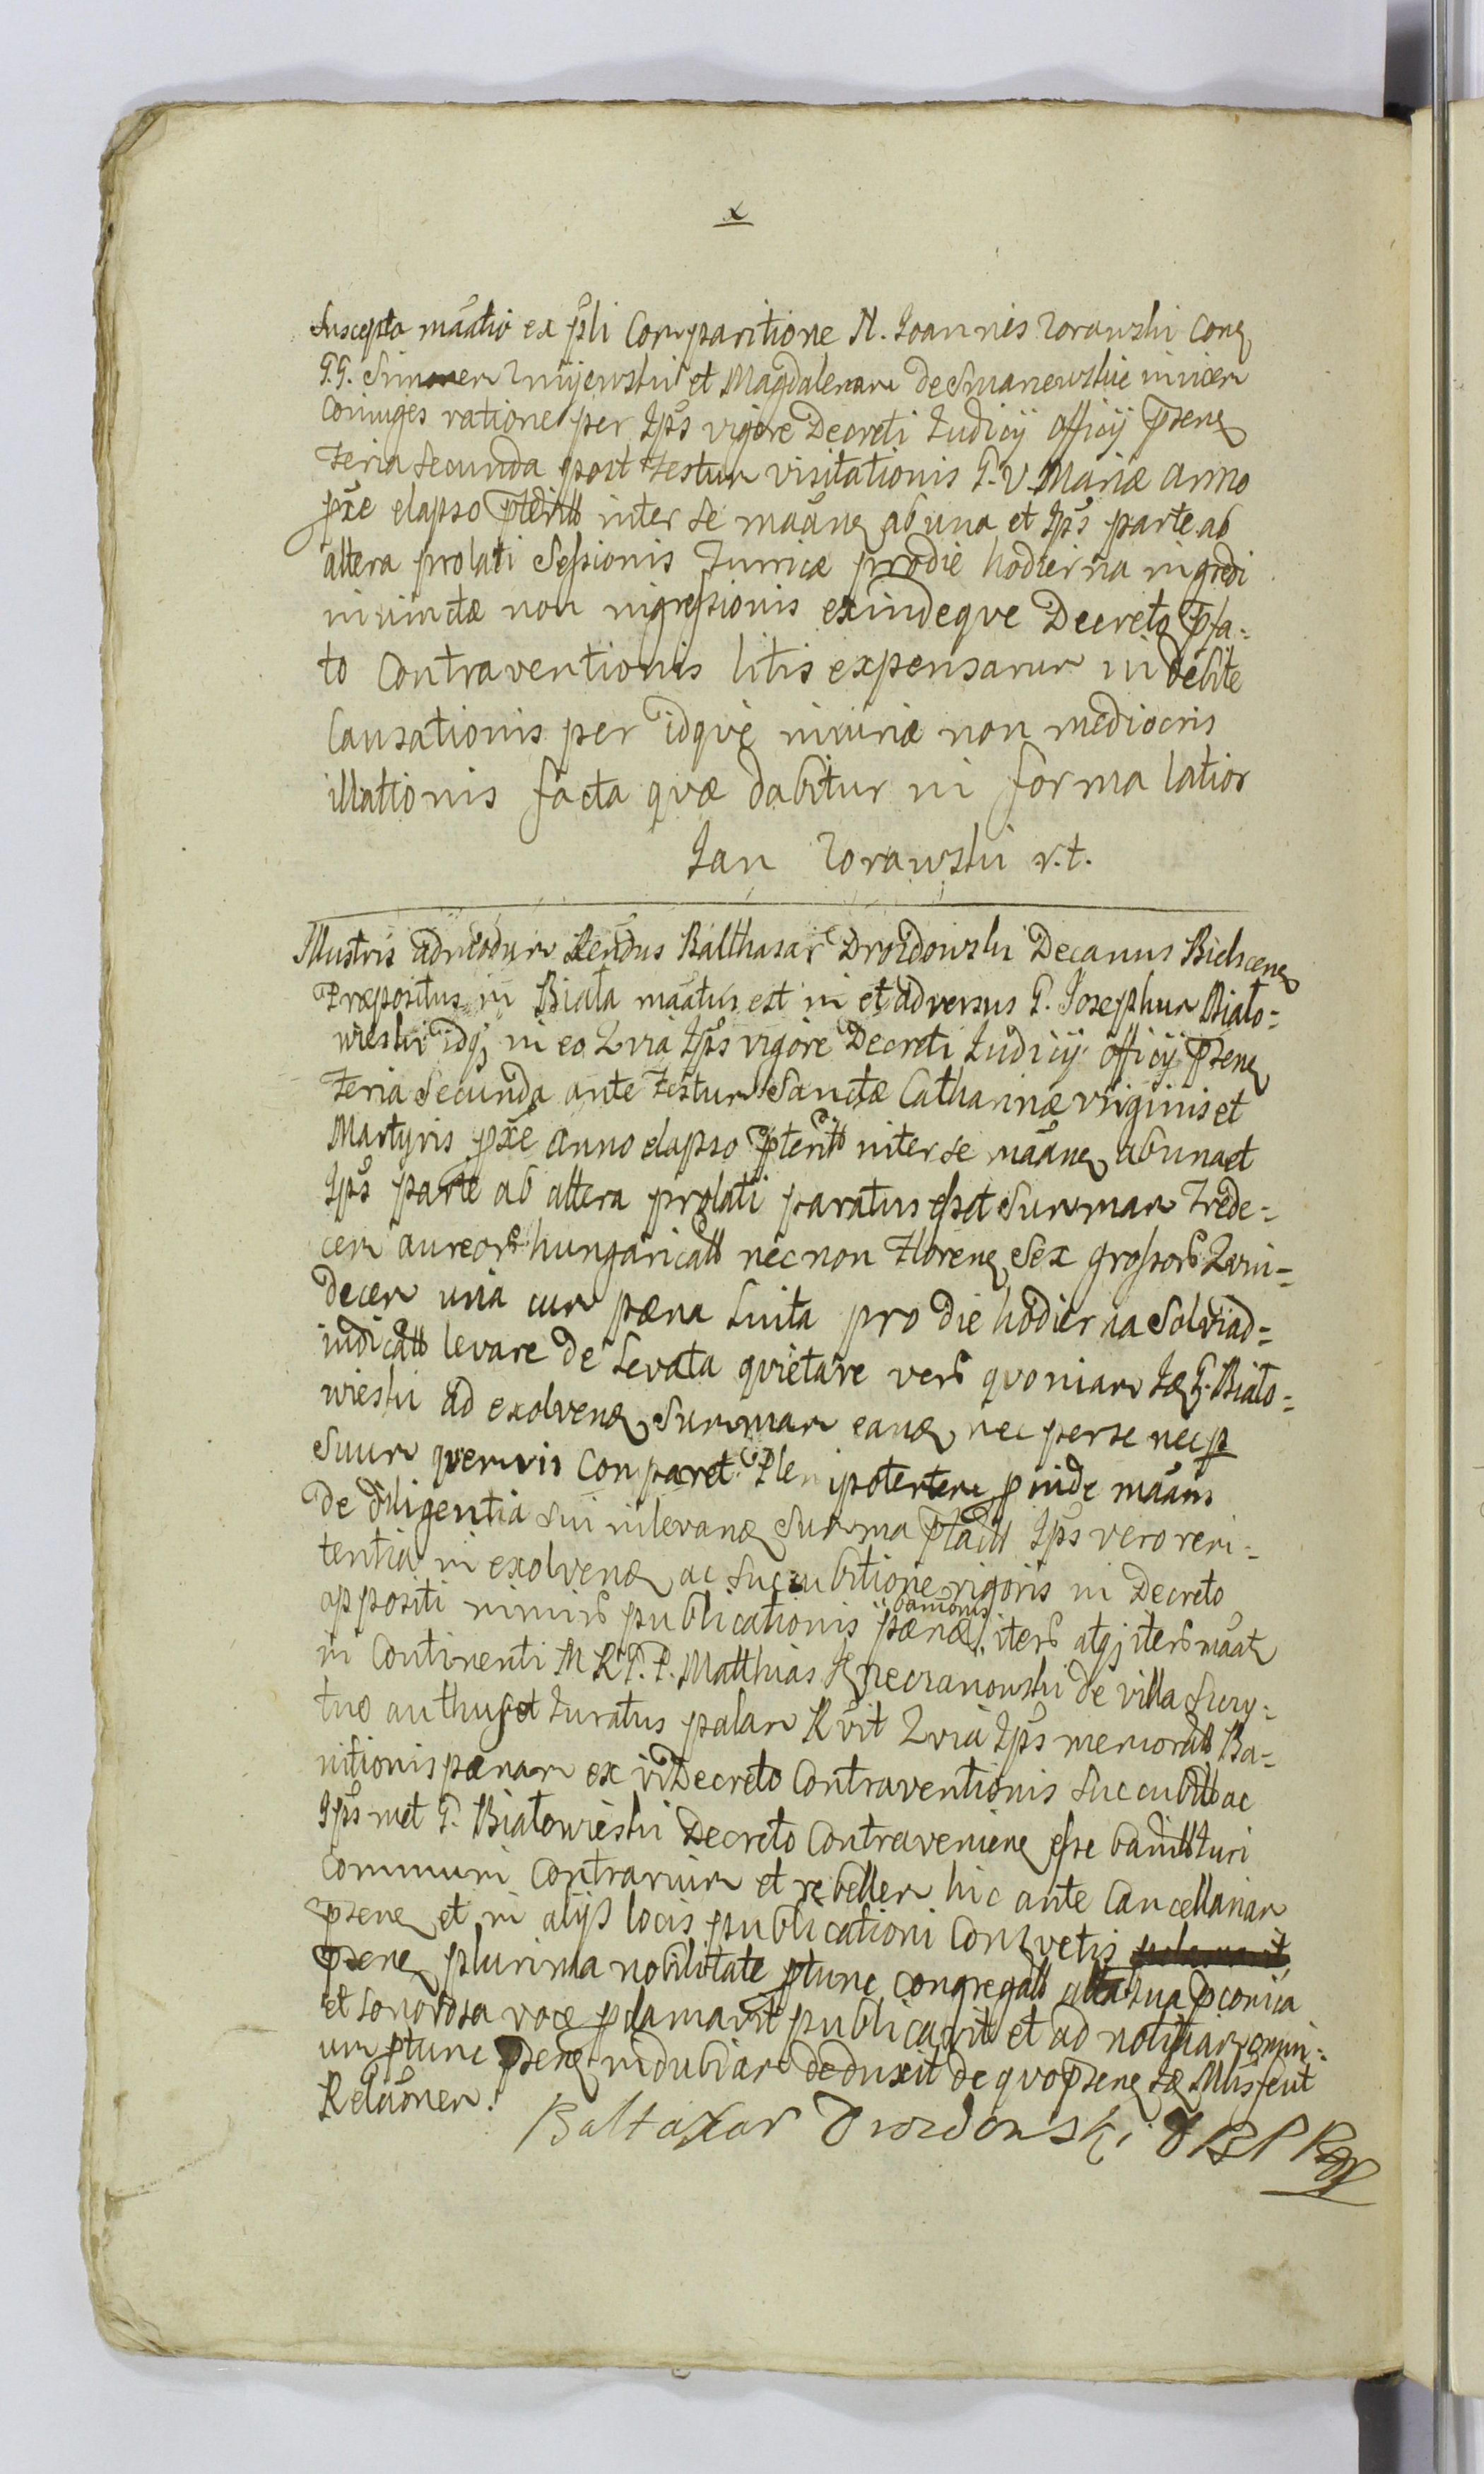 x
Suscepta mãatio ex pli Comparitione N. Joannis Zorawski Conq
G.G. Simonem Zmijewski et Magdalenam de Smaniewskie invicem
Coniuges ratione per Ips vigore Decreti Judicij officij psenq
Feria Secunda post Festum visitationis B. V. Mariæ Anno
pxe elapso inter se maãnq ab una et Ips parte ab
altera prolati Sessionis Turricæ pro die hodierna ingredi
iniunctæ non ingressionis exindeqve Decreto pfa=
to Contraventionis litis expensarum indebite
Causationis per idqve iniuriæ non mediocris
illationis facta qvæ dabitur in forma latior
Jan Zorawski r.t.
Illustris admodum Rendus Balthasar Drozdowski Decanus Bielscenq
Præpositus in Biała maatus est in et adversus G. Josephum Biało=
wieski idq; in eo Qvia Ips vigore Decreti Judicij officij psenq
Feria Secunda ante Festum Sanctæ Catharinæ virginis et
Martyris pxe Anno elapso pterit inter se maãnq ab una et
Ips parte ab altera prolati paratus esset Summam Trede=
cem aureor hungaricall nec non Florenq Sex grossor Qvin=
decem una cum pæna Luita pro die hodierna Solvi ad=
iudicall levare de Levata qvietare vero qvoniam G. Biało=
wieski ad exolvenq Summam eanq nec per se nec p
Suum qvemvis Comparet Plenipotentem pinde maãns
De diligentia sui in levanq Summa Ips vero reni=
tentia in exolvenq ac Succubitione rigoris in Decreto
appositi nimir publicationis pænæ banionis iter atq; iter maat
in Continenti M R G. P. Matthias Niecranowski de villa Sury=
tuo authus et Juratus palam Rvit Qvia Ips memorall Ba=
nitionis pænam ex vi Decreto Contraventionis Succubill ac
Ips met G. Białowieski Decreto Contravenienq esse banill Juri
Communi Contrarium et rebellem hic ante Cancellariam
psenq et in alijs locis publicationi Consvetis
psenq plurima nobilitate ptunc congregall alta sua pconica
et sonorosa voce pclamavit publicavit et ad notitiam omni=
um ptunc psenq indubiam deduxit de qvo psenq fecit
Relãonem.
Baltazar Drozdowski D B P B